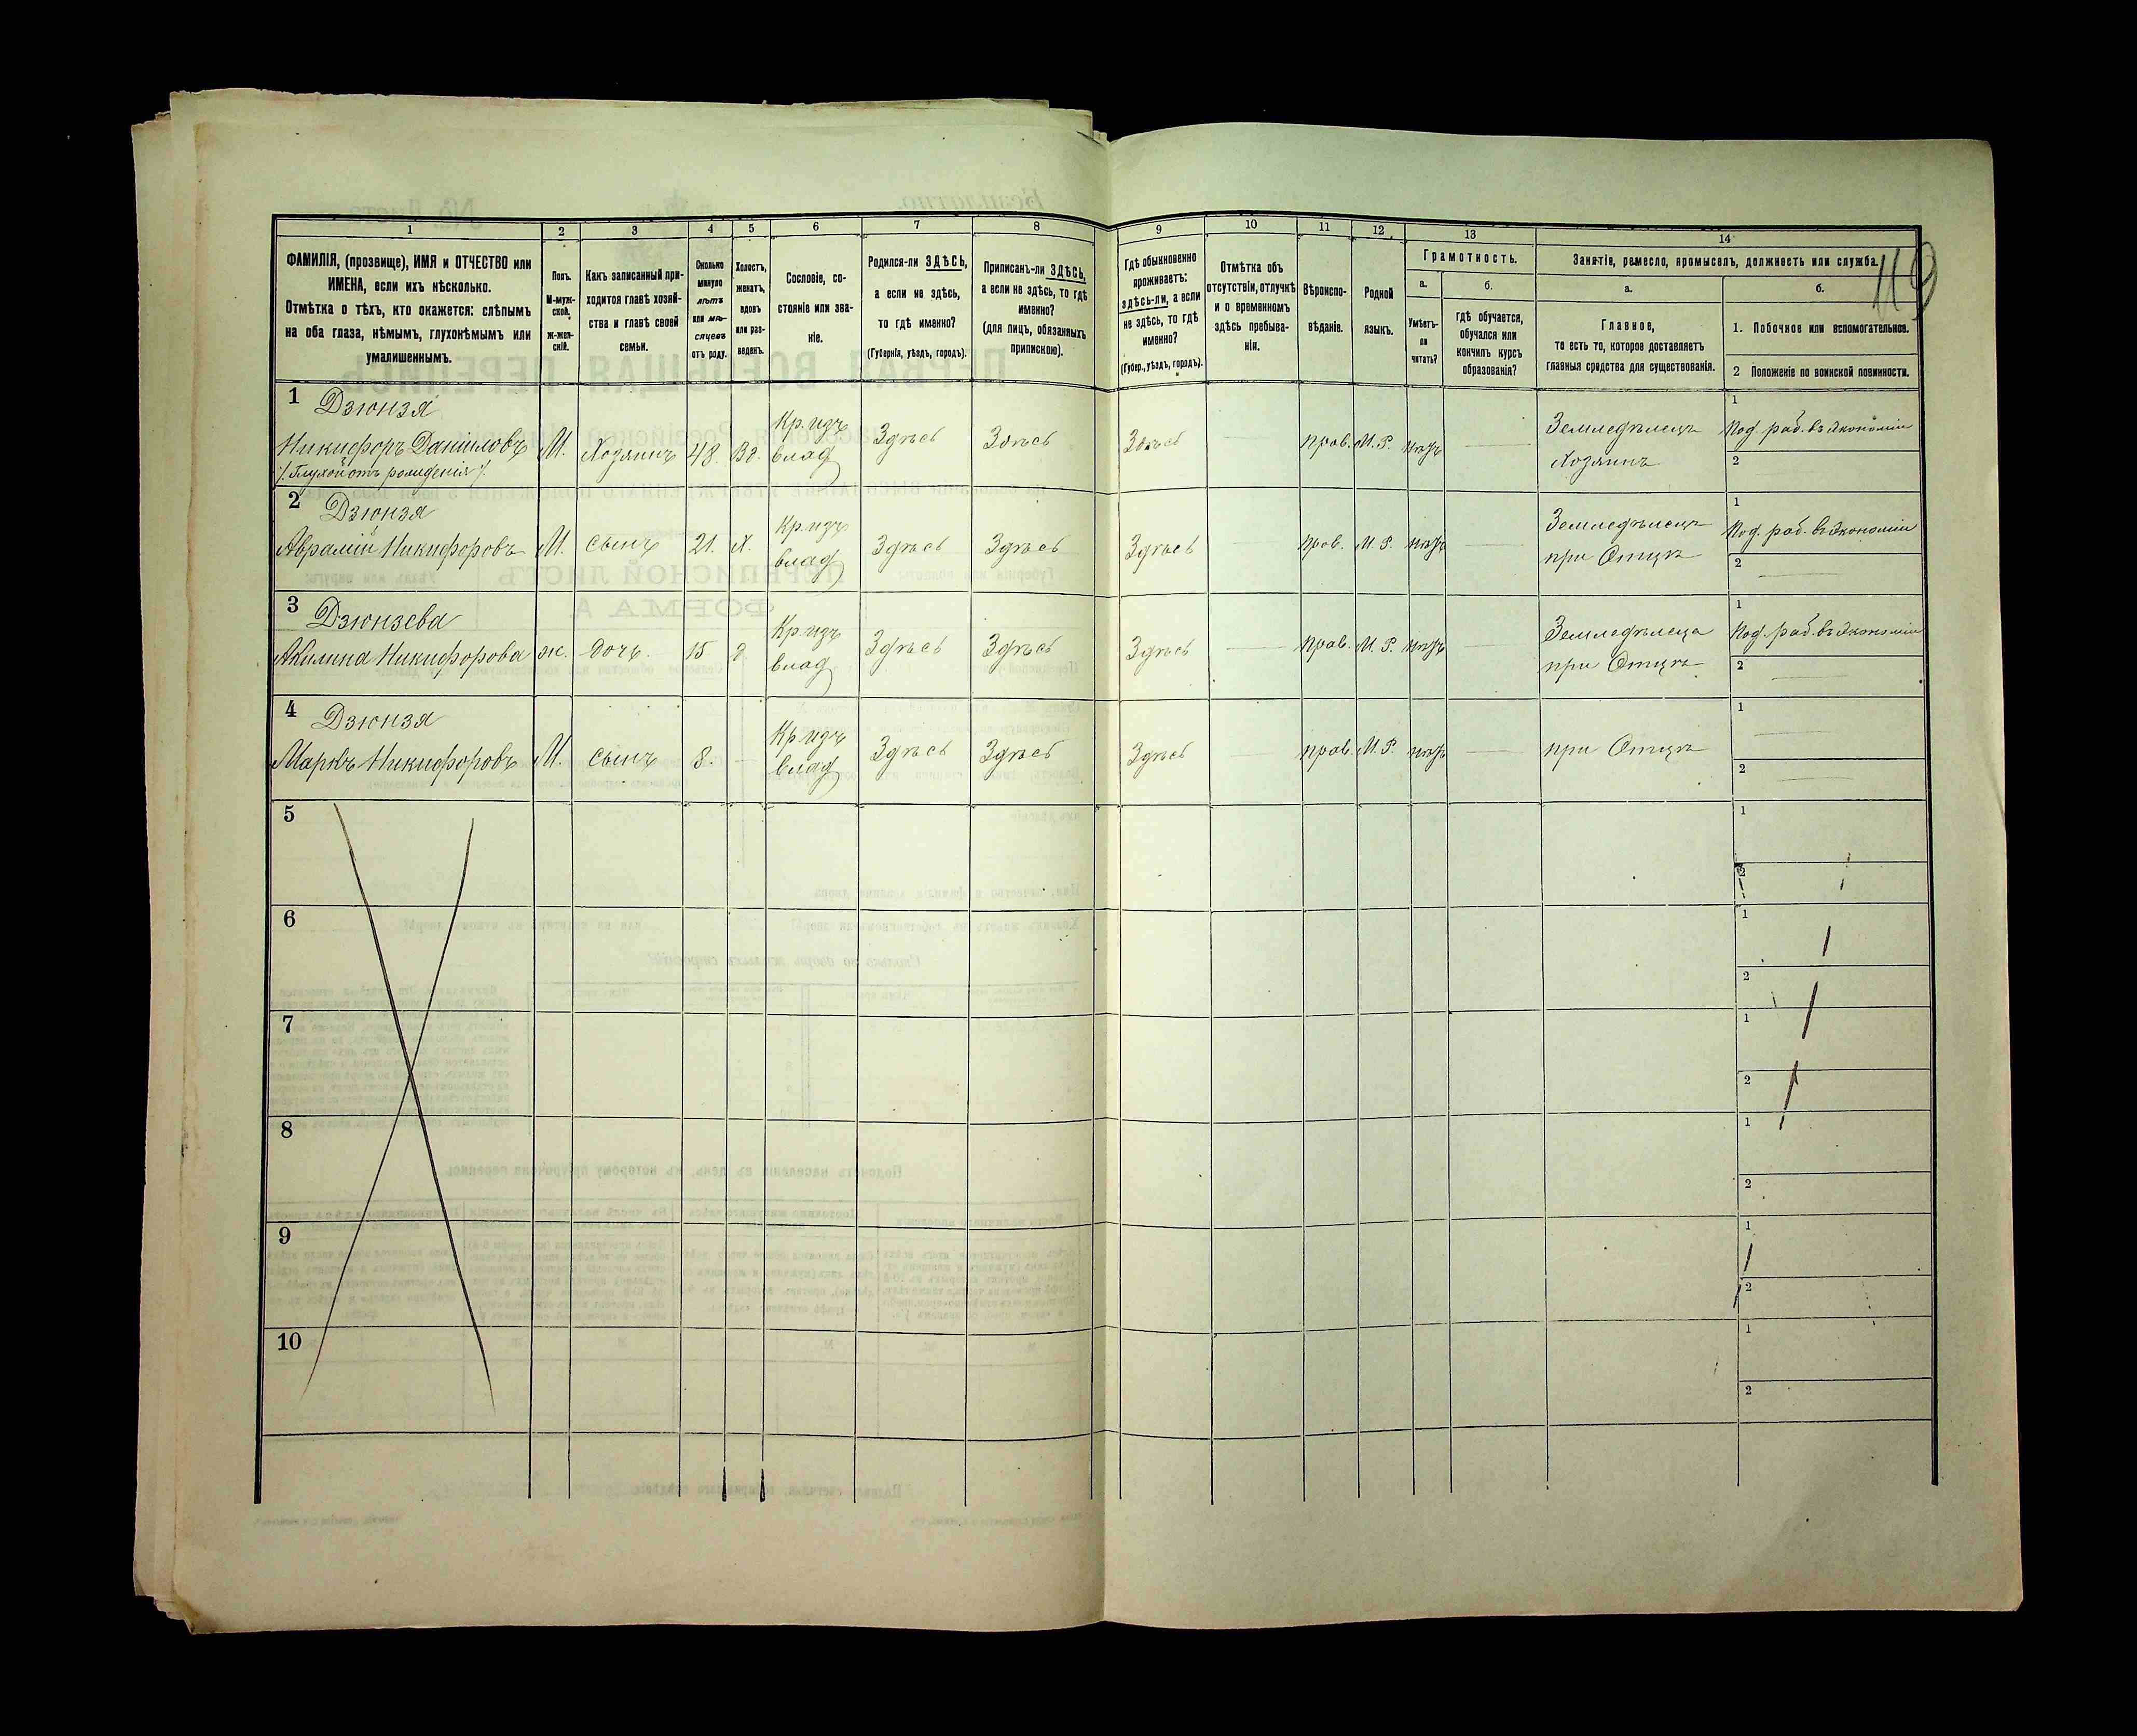 119
1 2 3 4 5 6 7 8 9 10 11 12 13 14
ФАМИЛІЯ, (прозвище), ИМЯ и ОТЧЕСТВО или
ИМЕНА, если ихъ нѣсколько.
Отмѣтка о тѣхъ, кто окажется: слѣпымъ
на оба глаза, нѣмымъ, глухонѣмымъ или
умалишеннымъ.
Полъ.
М-муж-
ской.
ж-жен-
скій.
Какъ записанный при-
ходится главѣ хозяй-
ства и главѣ своей
семьи.
Сколько
минуло
лѣтъ
или мѣ-
сяцевъ
отъ роду.
Холостъ,
женатъ,
вдовъ
или раз-
веденъ.
Сословіе, со-
стояніе или зва-
ніе.
Родился-ли ЗДѢСЬ,
а если не здѣсь,
то гдѣ именно?
(Губернія, уѣздъ, городъ).
Приписанъ-ли ЗДѢСЬ,
а если не здѣсь, то гдѣ
именно?
(для лицъ, обязанныхъ
припискою).
Гдѣ обыкновенно
проживаетъ:
здѣсь-ли, а если
не здѣсь, то гдѣ
именно?
(Губер., уѣздъ, городъ).
Отмѣтка объ
отсутствіи, отлучкѣ
и о временномъ
здѣсь пребыва-
ніи.
Вѣроиспо-
вѣданіе.
Родной
языкъ.
Грамотность.
а.
Умѣетъ-
ли
читать?
б.
гдѣ обучается,
обучался или
кончилъ курсъ
образованія?
Занятія, ремесло, промыселъ, должность или служба.
а.
Главное,
то есть то, которое доставляетъ
главныя средства для существованія.
б.
1. Побочное или вспомогательное.
2 Положеніе по воинской повинности.
1 Дзюнзя
Никифоръ Даниловъ М. Хозяинъ 48. Вд. Кр. изъ влад Здѣсь Здѣсь Здѣсь прав. М. Р. нѣтъ Земледѣлецъ Хозяинъ 1 Под. раб. въ Экономіи
/. Глухой отъ рожденія /. 2
2 Дзюнзя
Аврамій Никифоровъ М. сынъ 21. Х. Кр. изъ влад Здѣсь Здѣсь Здѣсь прав. М. Р. нѣтъ Земледѣлецъ при Отцѣ 1 Под. раб. въ Экономіи
2
3 Дзюнзева
Акилина Никифорова ж. дочь. 15 д Кр. изъ влад Здѣсь Здѣсь Здѣсь прав. М. Р. нѣтъ Земледѣлица при Отцѣ 1 Под. раб. въ Экономіи
2
4 Дзюнзя
Маркъ Никифоровъ М. сынъ 8. Кр. изъ влад Здѣсь Здѣсь Здѣсь прав. М. Р. нѣтъ при Отцѣ 1
2
5 1
2
6 1
2
7 1
2
8 1
2
9 1
2
10 1
2